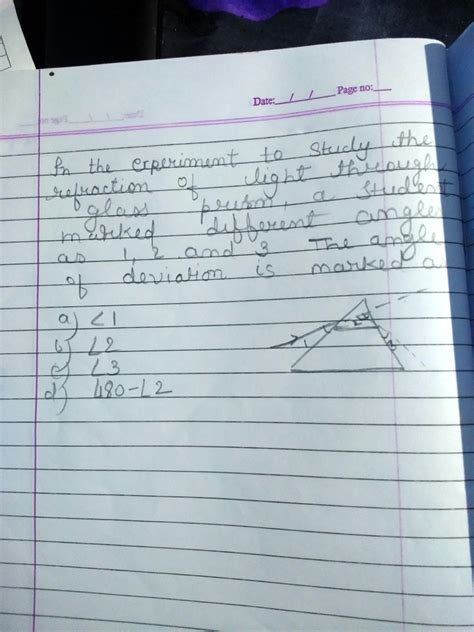 Date: __/__/__ Page no: __
In the experiment to study the
refraction of light through
glass prism, a student
marked different angle
as 1, 2 and 3 The angle
of deviation is marked a
a) ∠1
b) ∠2
c) ∠3
d) 180-∠2
1 2 3